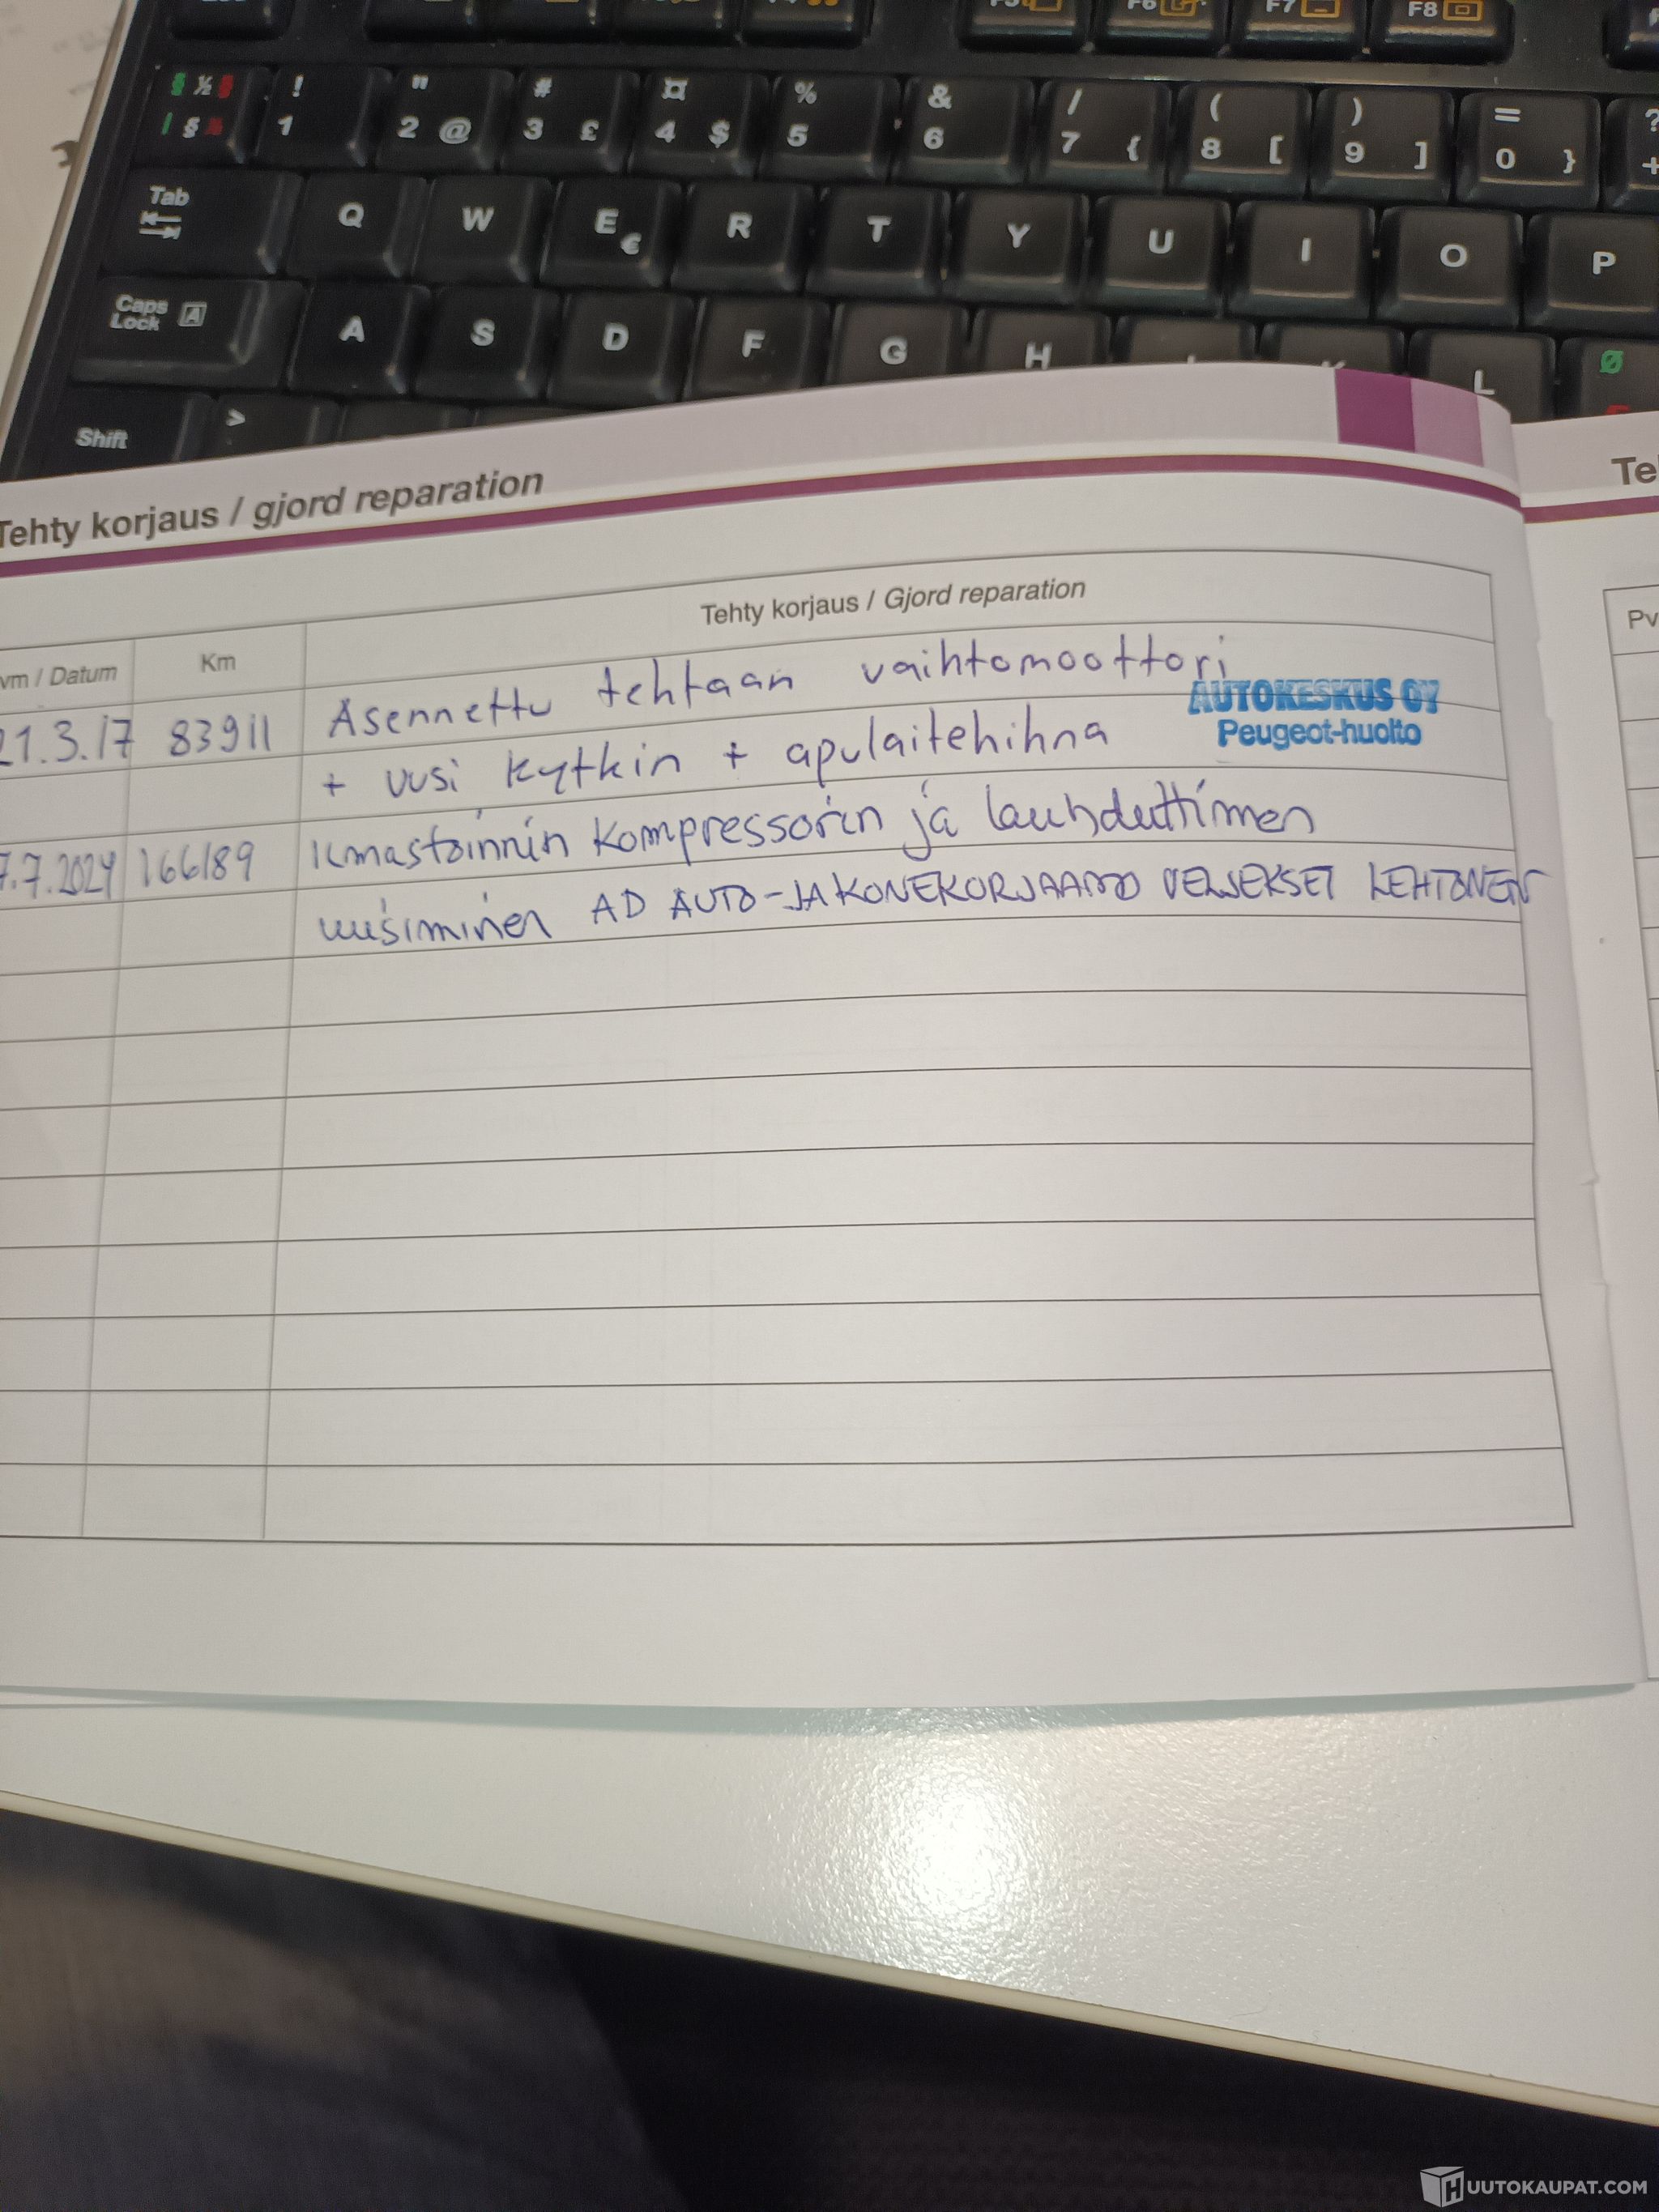 F6 F7 F8
§ ½ ! " # ¤ % & / ( ) = ?
§ 1 2 @ 3 £ 4 $ 5 6 7 { 8 [ 9 ] 0 } +
Tab Q W E € R T Y U I O P
Caps Lock A A S D F G H L Ø
Shift >
Tehty korjaus / gjord reparation
Te
Tehty korjaus / Gjord reparation
vm / Datum Km
Pv
21.3.17 83911 Asennettu tehtaan vaihtomoottori
AUTOKESKUS OY
Peugeot-huolto
+ uusi kytkin + apulaitehihna
7.7.2024 166189 Ilmastoinnin kompressorin ja lauhduttimen
uusiminen AD AUTO-JA KONEKORJAAMO VELJEKSET LEHTONEN
HUUTOKAUPAT.COM